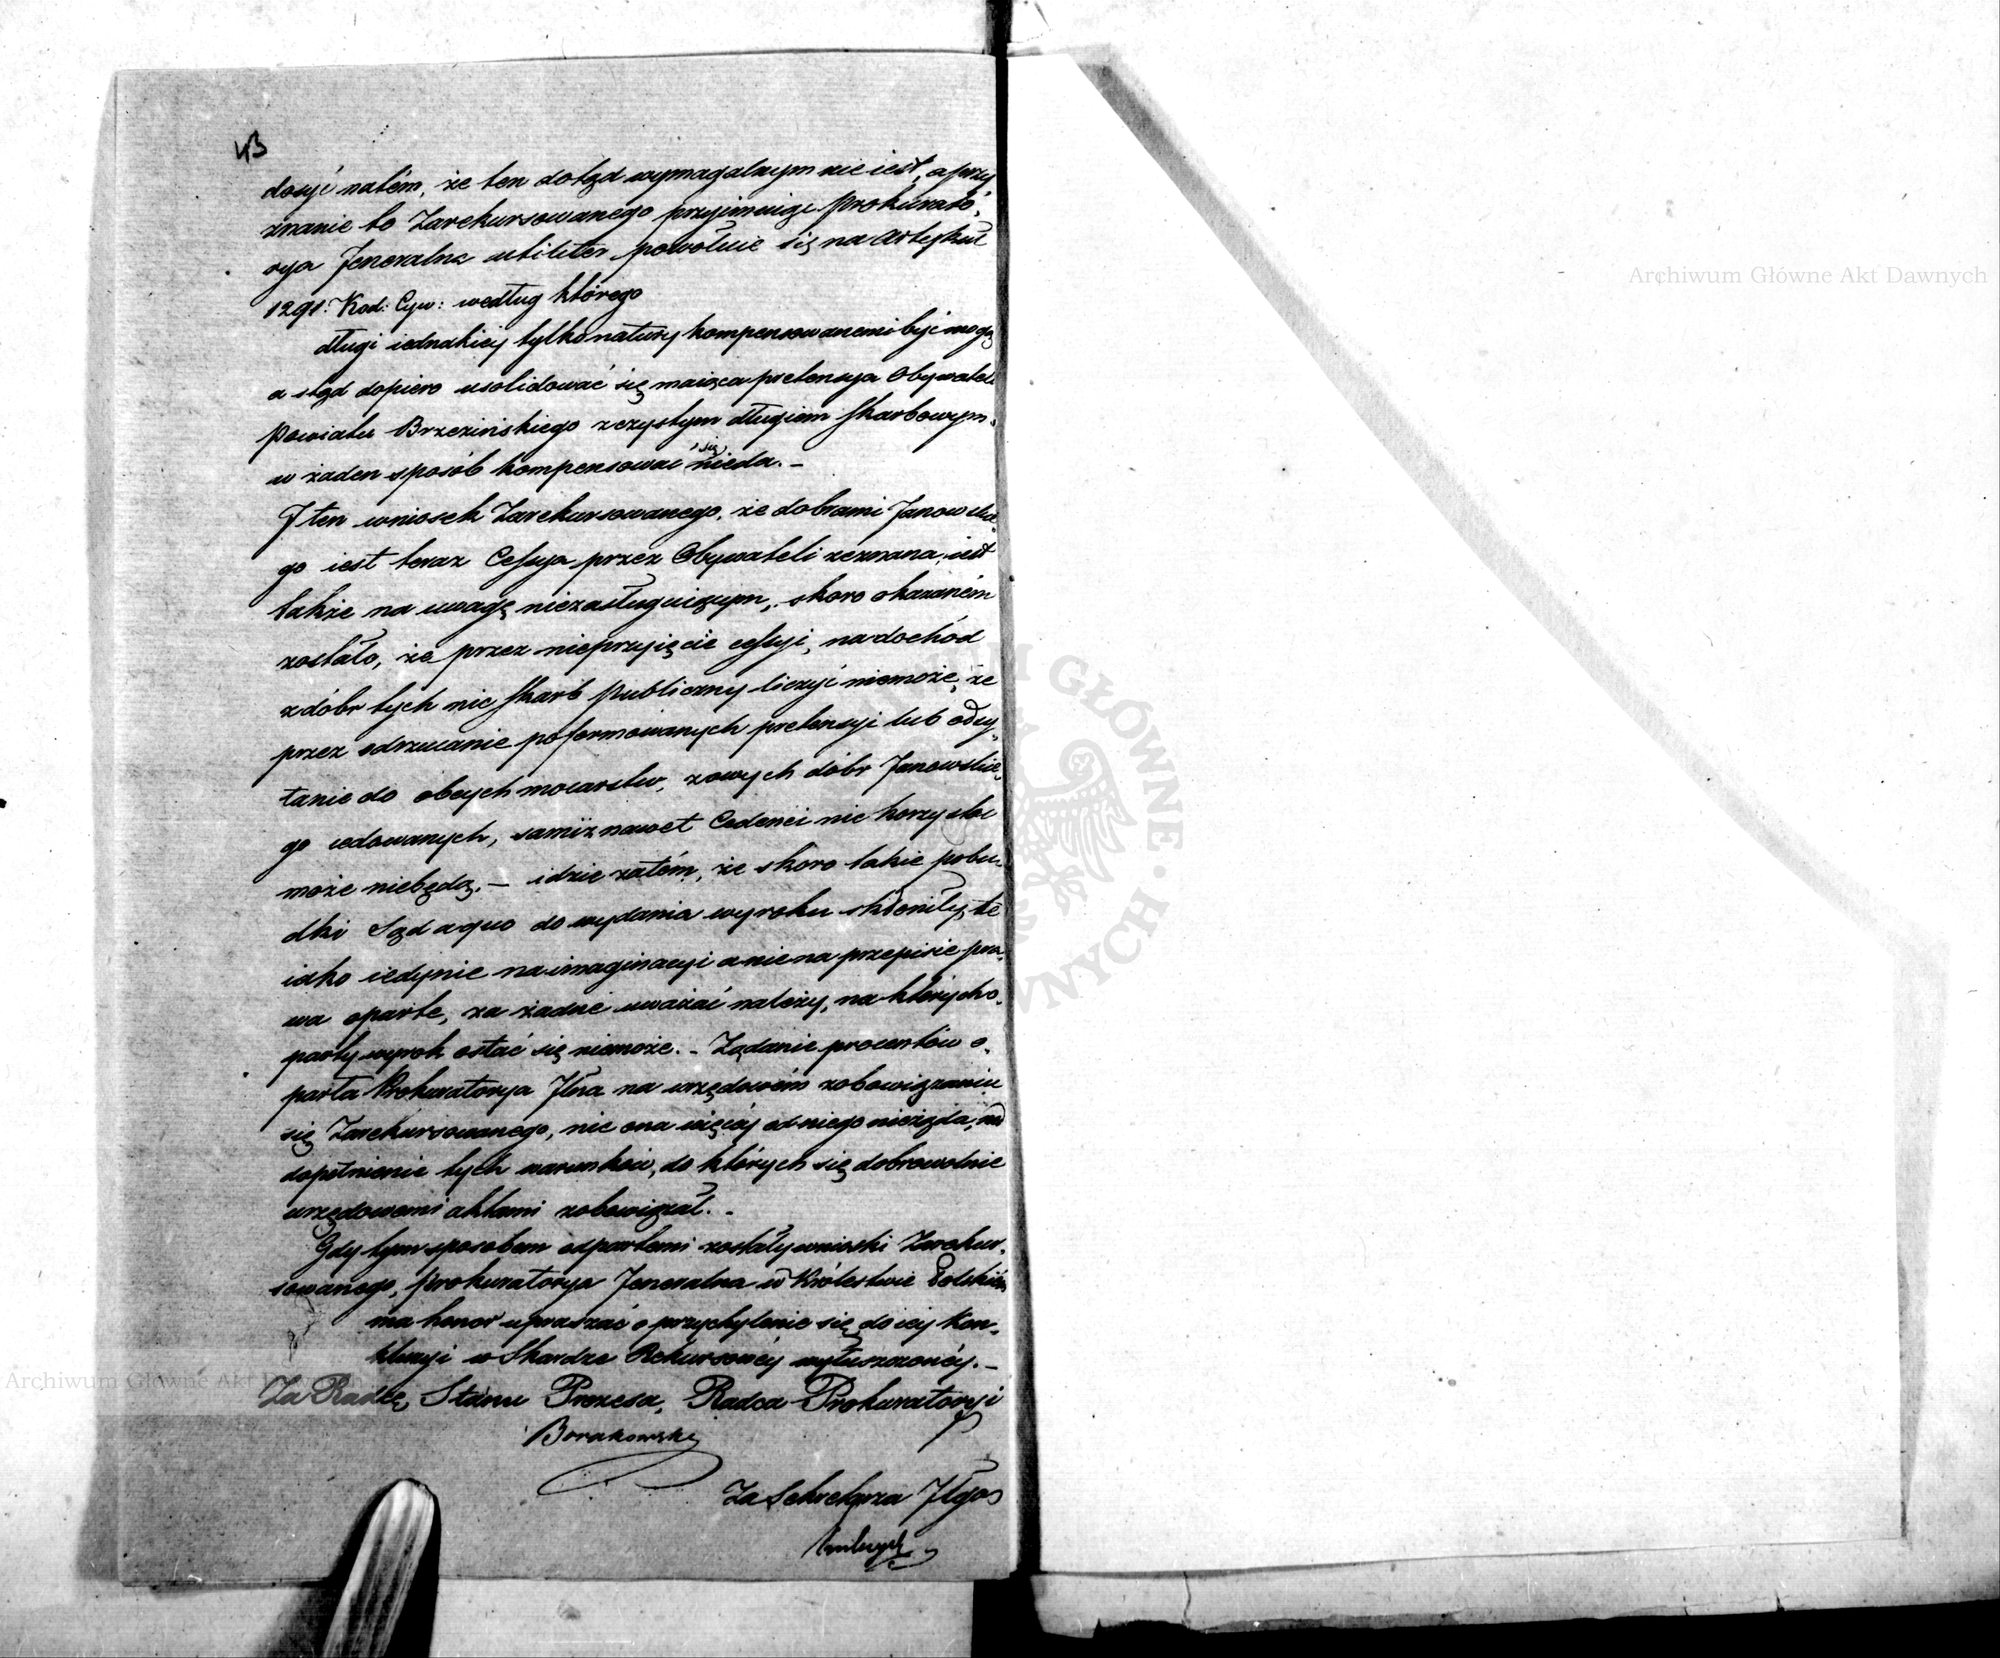 43
dosyć natém, że ten dotąd wymagalnym nie iest, a przy
znanie to Zarekursowanego przyimuiąc Prokurato,
rya Jeneralna utiliter powołuie się na Artykuł
1291. Kod: Cyw: według którego
długi iednakiéj tylko natury kompensowanemi być mogą
a stąd dopiero usolidować się maiąca pretensya Obywateli
Powiatu Brzezińskiego z czystym długiem skarbowym
w żaden sposób kompensować się nieda. –
I ten wniosek Zarekursowanego, że dobrami Janowskie,
go iest teraz Cessya przez Obywateli zeznana, iest
także na uwagę niezasługuiącym, skoro okazaném
zostało, że przez nieprzyięcie cessyi, na dochód
z dóbr tych nic Skarb Publiczny liczyć niemoże, że
przez odrzucanie poformowanych pretensyi lub odsy,
łanie do obcych mocarstw, z owych dóbr Janowskie,
go cedowanych, samiż nawet Cedenci nic korzystać
może niebędą. – idzie zatém, że skoro takie pobu,
dki Sąd a quo do wydania wyroku skłoniły, te
iako iedynie na imaginacyi a nie na przepisie pra,
wa oparte, za żadne uważać należy, na których o,
party wyrok ostać się niemoże. – Żądanie procentów o,
parła Prokuratorya Jlna na urzędowém zobowiązaniu
się Zarekursowanego, nic ona więcéj od niego nieżąda, nad
dopełnienie tych warunków, do których się dobrowolnie
urzędowemi aktami zobowiązał. –
Gdy tym sposobem odpartemi zostały wnioski Zarekur,
sowanego, Prokuratorya Jeneralna w Królestwie Polskiém
ma honor upraszać o przychylenie się do iéj Kon,
kluzyi w Skardze Rekursowéj wyłuszczonéj. –
Za Radcę Stanu Prezesa, Radca Prokuratoryi
Borakowski
Za Sekretarza Jlgo
Archiwum Główne Akt Dawnych
Archiwum Główne Akt Dawnych